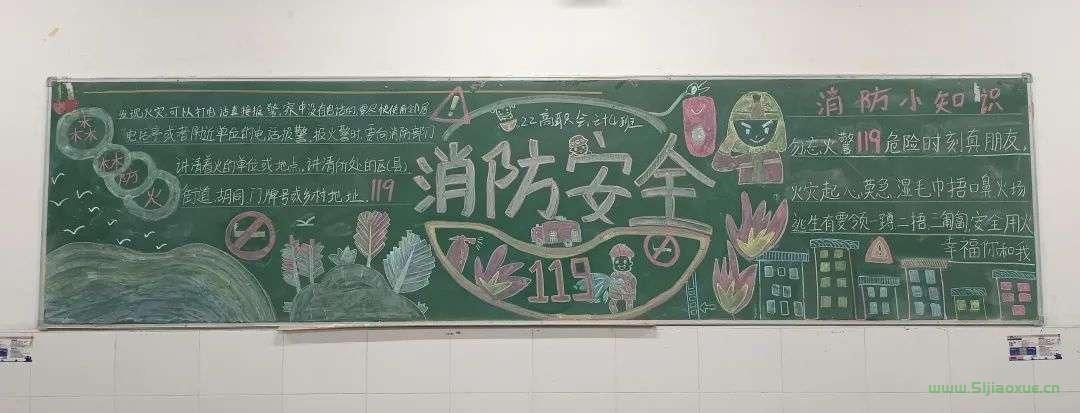 发现火灾,可从打电话直接报警,家中没有电话的,要尽快使用邻居
电话亭或者附近单位的电话报警,报火警时要向消防部门
讲清着火的单位或地点,讲清所处的区(县)、
街道、胡同、门牌号或乡村地址。119
森林防火
22高职会计4班
消防安全
119
消防小知识
勿忘火警119危险时刻真朋友,
火灾起,心莫急,湿毛巾捂口鼻,火场
逃生有要领,一蹲二捂三匍匐,安全用火
幸福你和我
www.51jiaoxue.cn